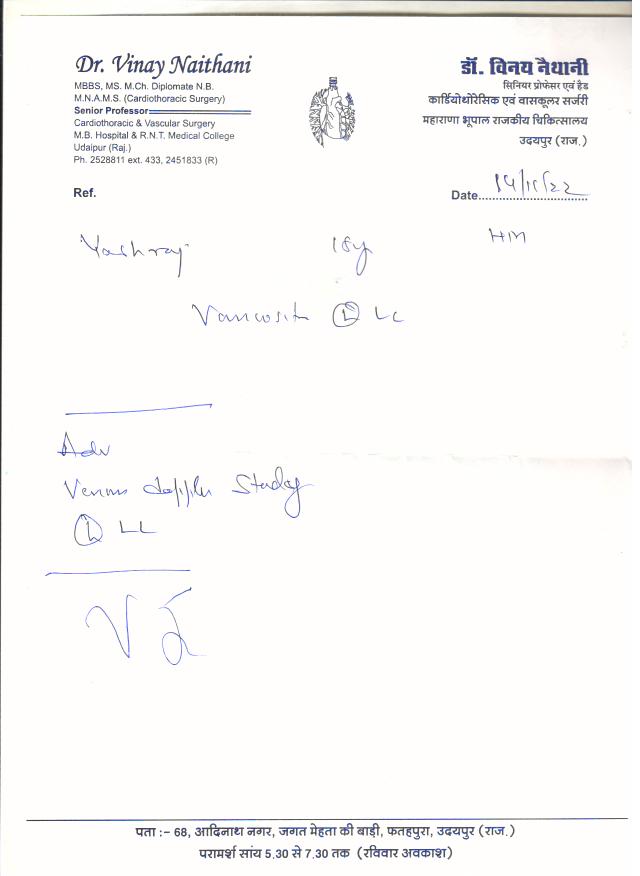 Dr. Vinay Naithani
MBBS, MS. M.Ch. Diplomate N.B.
M.N.A.M.S. (Cardiothoracic Surgery)
Senior Professor
Cardiothoracic & Vascular Surgery
M.B. Hospital & R.N.T. Medical College
Udaipur (Raj.)
Ph. 2528811 ext. 433, 2451833 (R)
डॉ. विनय नैथानी
सिनियर प्रोफेसर एवं हैड
कार्डियोथोरेसिक एवं वासकूलर सर्जरी
महाराणा भूपाल राजकीय चिकित्सालय
उदयपुर (राज.)
Ref.
Date 14/11/22
Yashraj 18y
Ⓛ
Adv
Venous doppler Study
Ⓛ LL
पता :– 68, आदिनाथ नगर, जगत मेहता की बाड़ी, फतहपुरा, उदयपुर (राज.)
परामर्श सांय 5.30 से 7.30 तक (रविवार अवकाश)